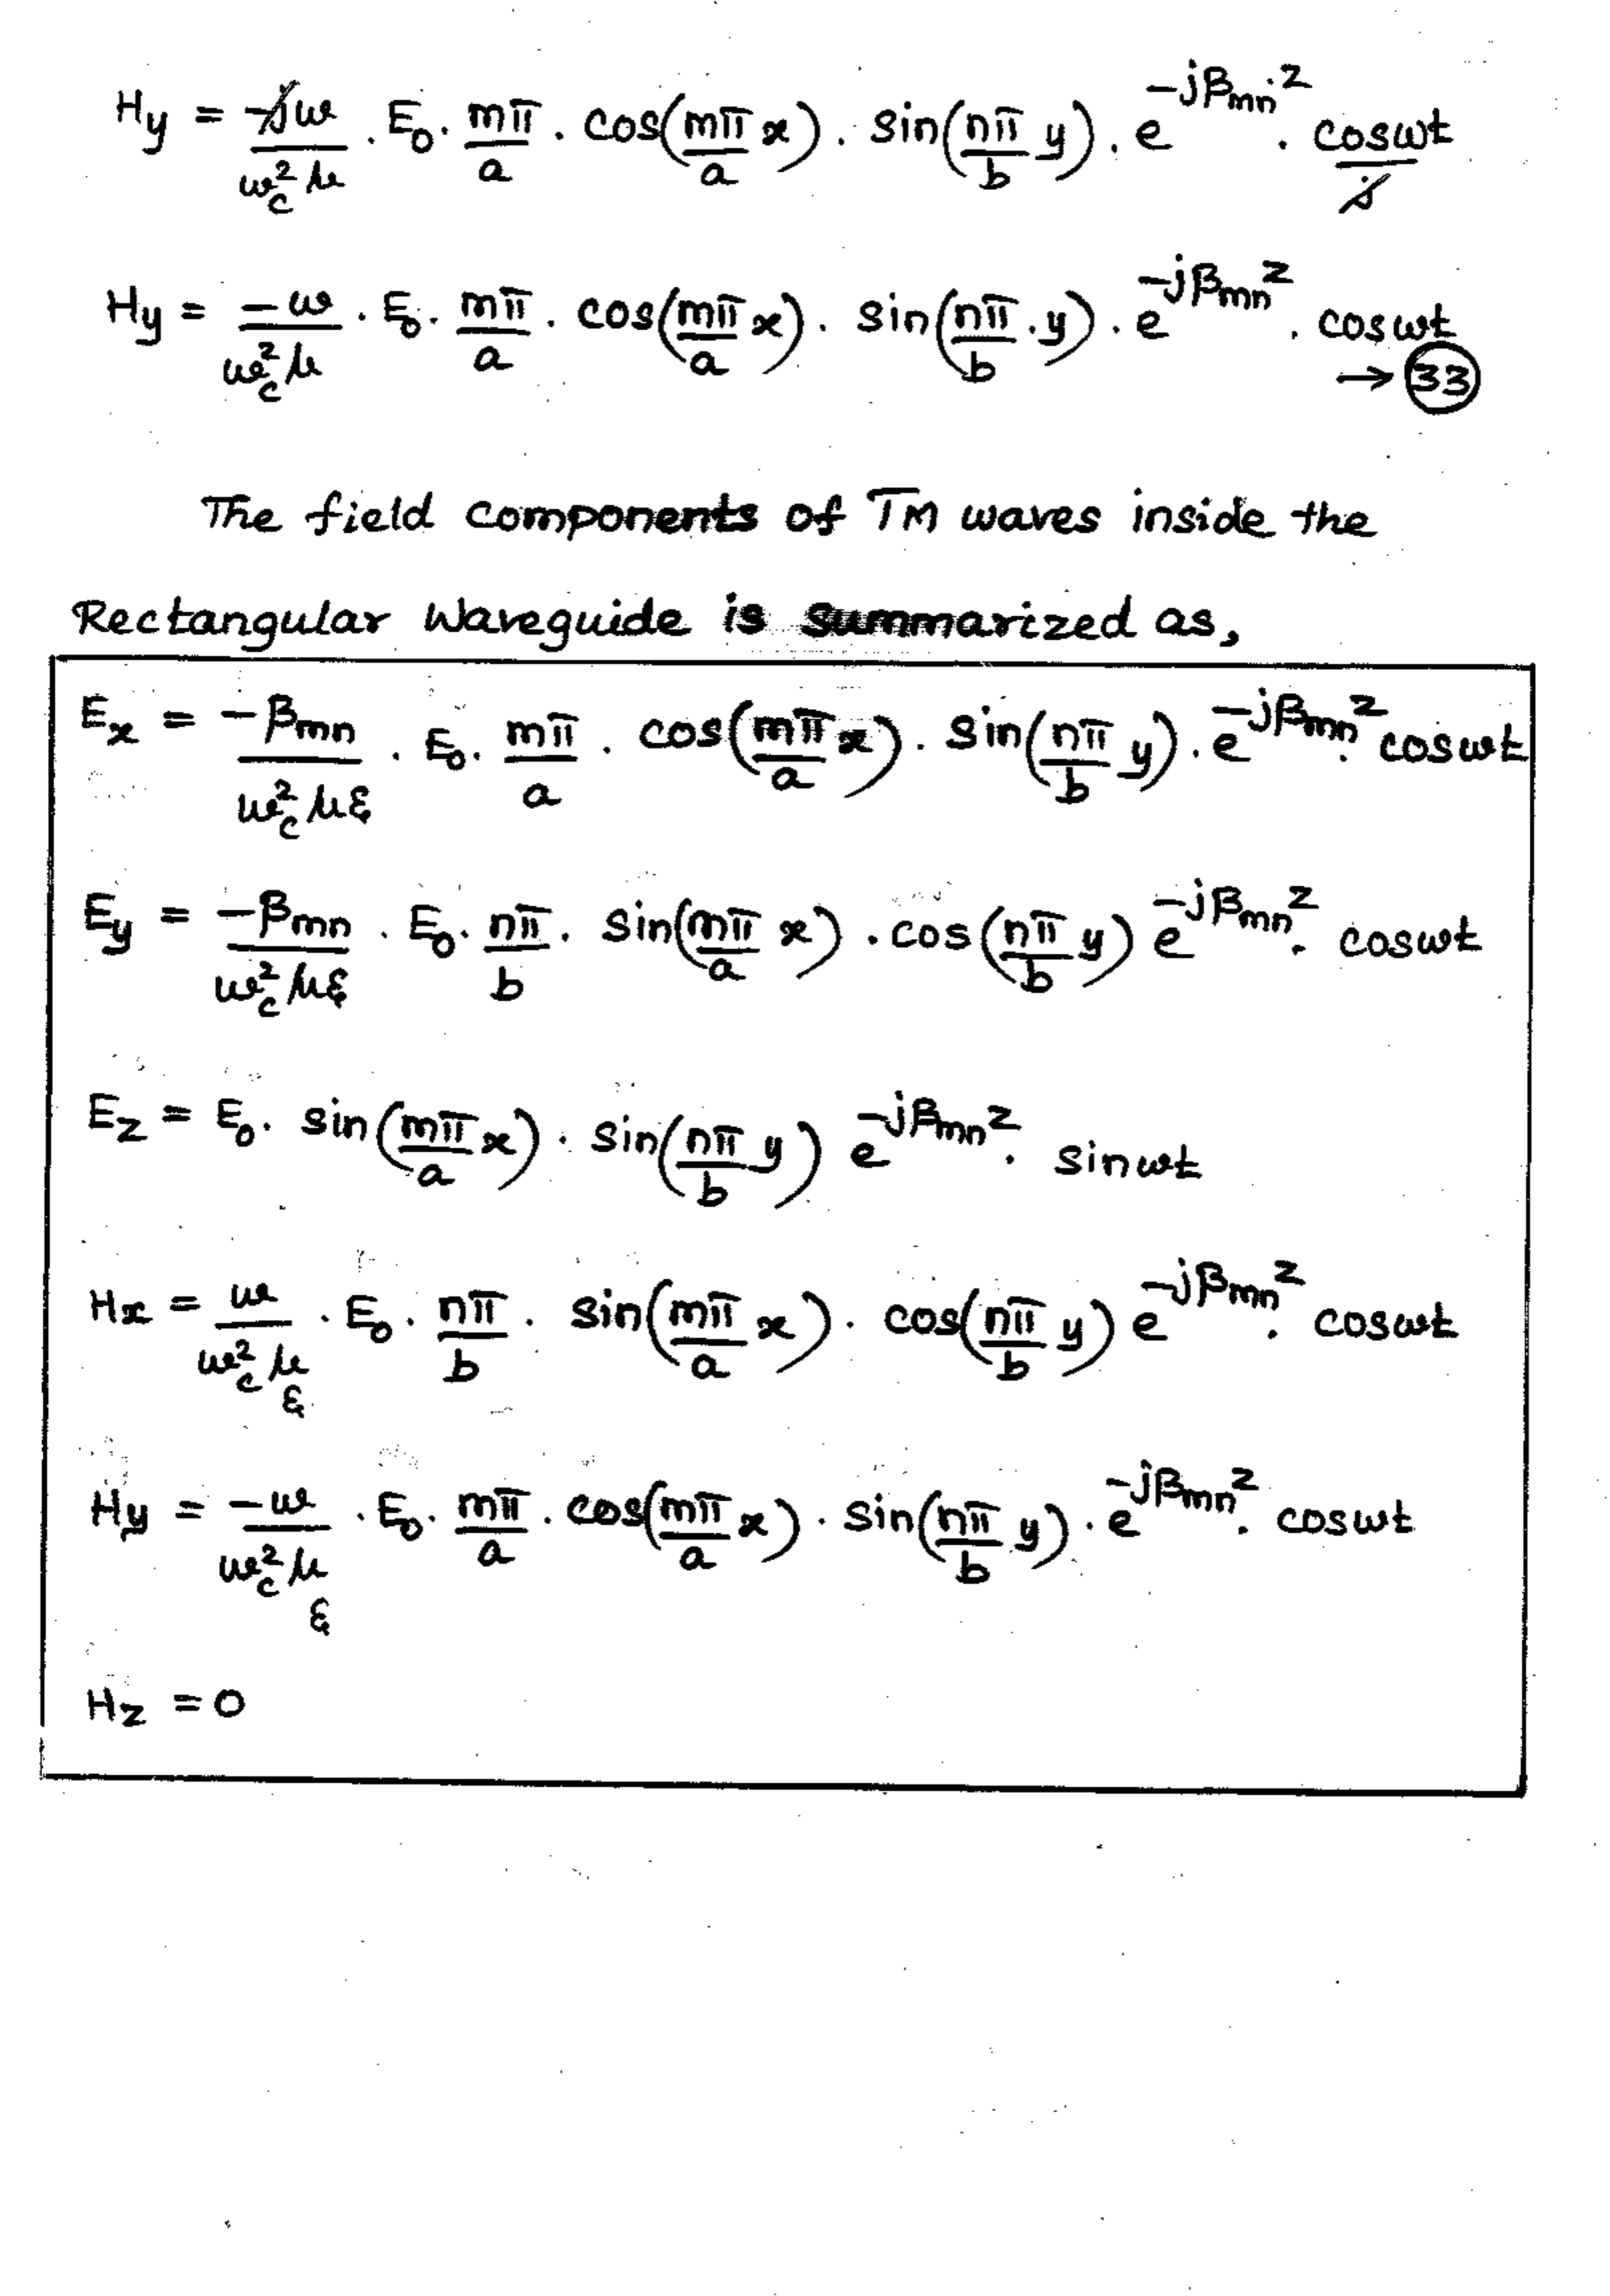 H_y = -jω/ω_c²μ . E₀ . mπ/a . cos(mπ/a x) . sin(nπ/b y) . e^{-jβ_mn z} . cosωt/j
H_y = -ω/ω_c²μ . E₀ . mπ/a . cos(mπ/a x) . sin(nπ/b . y) . e^{-jβ_mn z} . cosωt
→ 33
The field components of TM waves inside the
Rectangular Waveguide is summarized as,
E_x = -β_mn/ω_c²με . E₀ . mπ/a . cos(mπ/a x) . sin(nπ/b y) . e^{-jβ_mn z} . cosωt
E_y = -β_mn/ω_c²με . E₀ . nπ/b . sin(mπ/a x) . cos(nπ/b y) e^{-jβ_mn z} . cosωt
E_z = E₀ . sin(mπ/a x) . sin(nπ/b y) e^{-jβ_mn z} . sinωt
H_x = ω/ω_c²με . E₀ . nπ/b . sin(mπ/a x) . cos(nπ/b y) e^{-jβ_mn z} . cosωt
H_y = -ω/ω_c²με . E₀ . mπ/a . cos(mπ/a x) . sin(nπ/b y) . e^{-jβ_mn z} . cosωt
H_z = 0